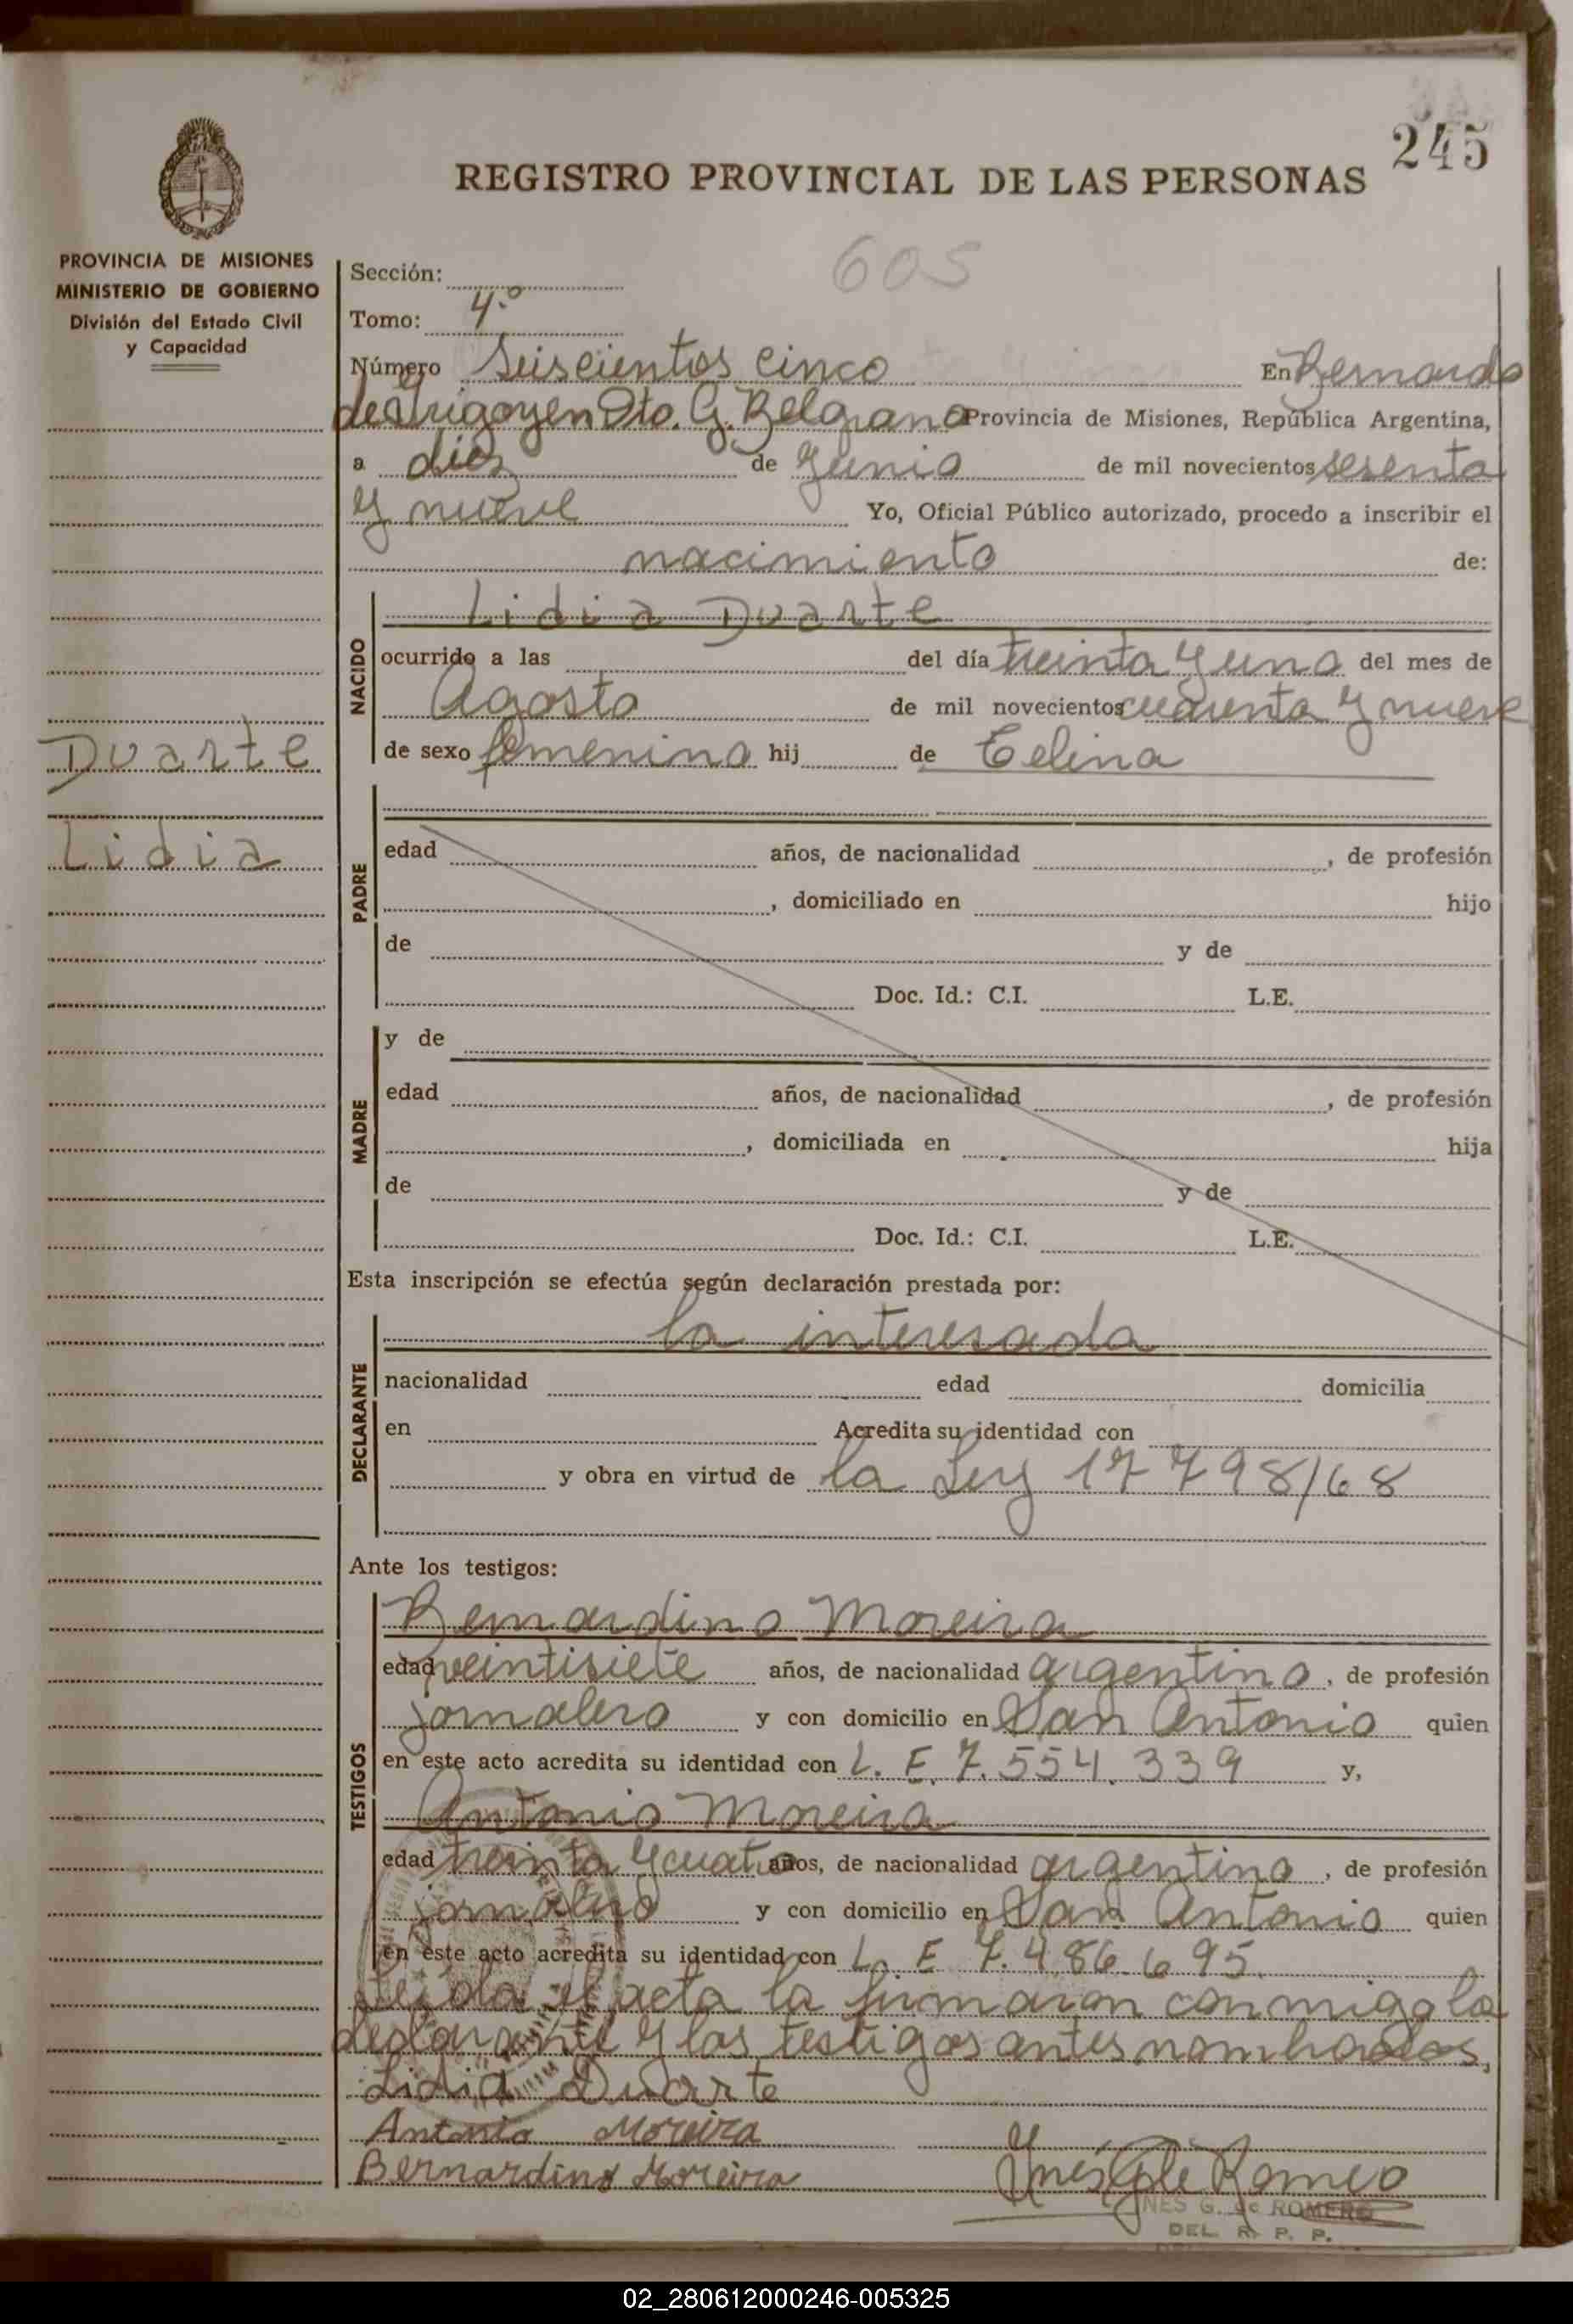 245
REGISTRO PROVINCIAL DE LAS PERSONAS
605
PROVINCIA DE MISIONES
MINISTERIO DE GOBIERNO
División del Estado Civil
y Capacidad
Sección:
Tomo: 4.º
Número Seiscientos cinco En Bernardo
de Irigoyen Dto. G. Belgrano Provincia de Misiones, República Argentina,
a diez de Junio de mil novecientos sesenta
y nueve Yo, Oficial Público autorizado, procedo a inscribir el
nacimiento de:
NACIDO
Lidia Duarte
ocurrido a las del día treinta y uno del mes de
Agosto de mil novecientos cuarenta y nueve
de sexo femenino hij de Celina
Duarte
Lidia
PADRE
edad años, de nacionalidad , de profesión
, domiciliado en hijo
de y de
Doc. Id.: C.I. L.E.
MADRE
y de
edad años, de nacionalidad , de profesión
, domiciliada en hija
de y de
Doc. Id.: C.I. L.E.
Esta inscripción se efectúa según declaración prestada por:
DECLARANTE
la interesada
nacionalidad edad domicilia
en Acredita su identidad con
y obra en virtud de la Ley 17798/68
Ante los testigos:
TESTIGOS
Bernardino Moreira
edad veintisiete años, de nacionalidad argentino, de profesión
jornalero y con domicilio en San Antonio quien
en este acto acredita su identidad con L. E. 7.554.339 y,
Antonio Moreira
edad treinta y cuatro años, de nacionalidad argentino, de profesión
jornalero y con domicilio en San Antonio quien
en este acto acredita su identidad con L. E 7.486.695
Leída el acta la firmaron conmigo la
declarante y los testigos antes nombrados,
Lidia Duarte
Antonio Moreira
Bernardino Moreira
Inés G de Romero
INES G. de ROMERO
DEL. R. P. P.
02_280612000246-005325